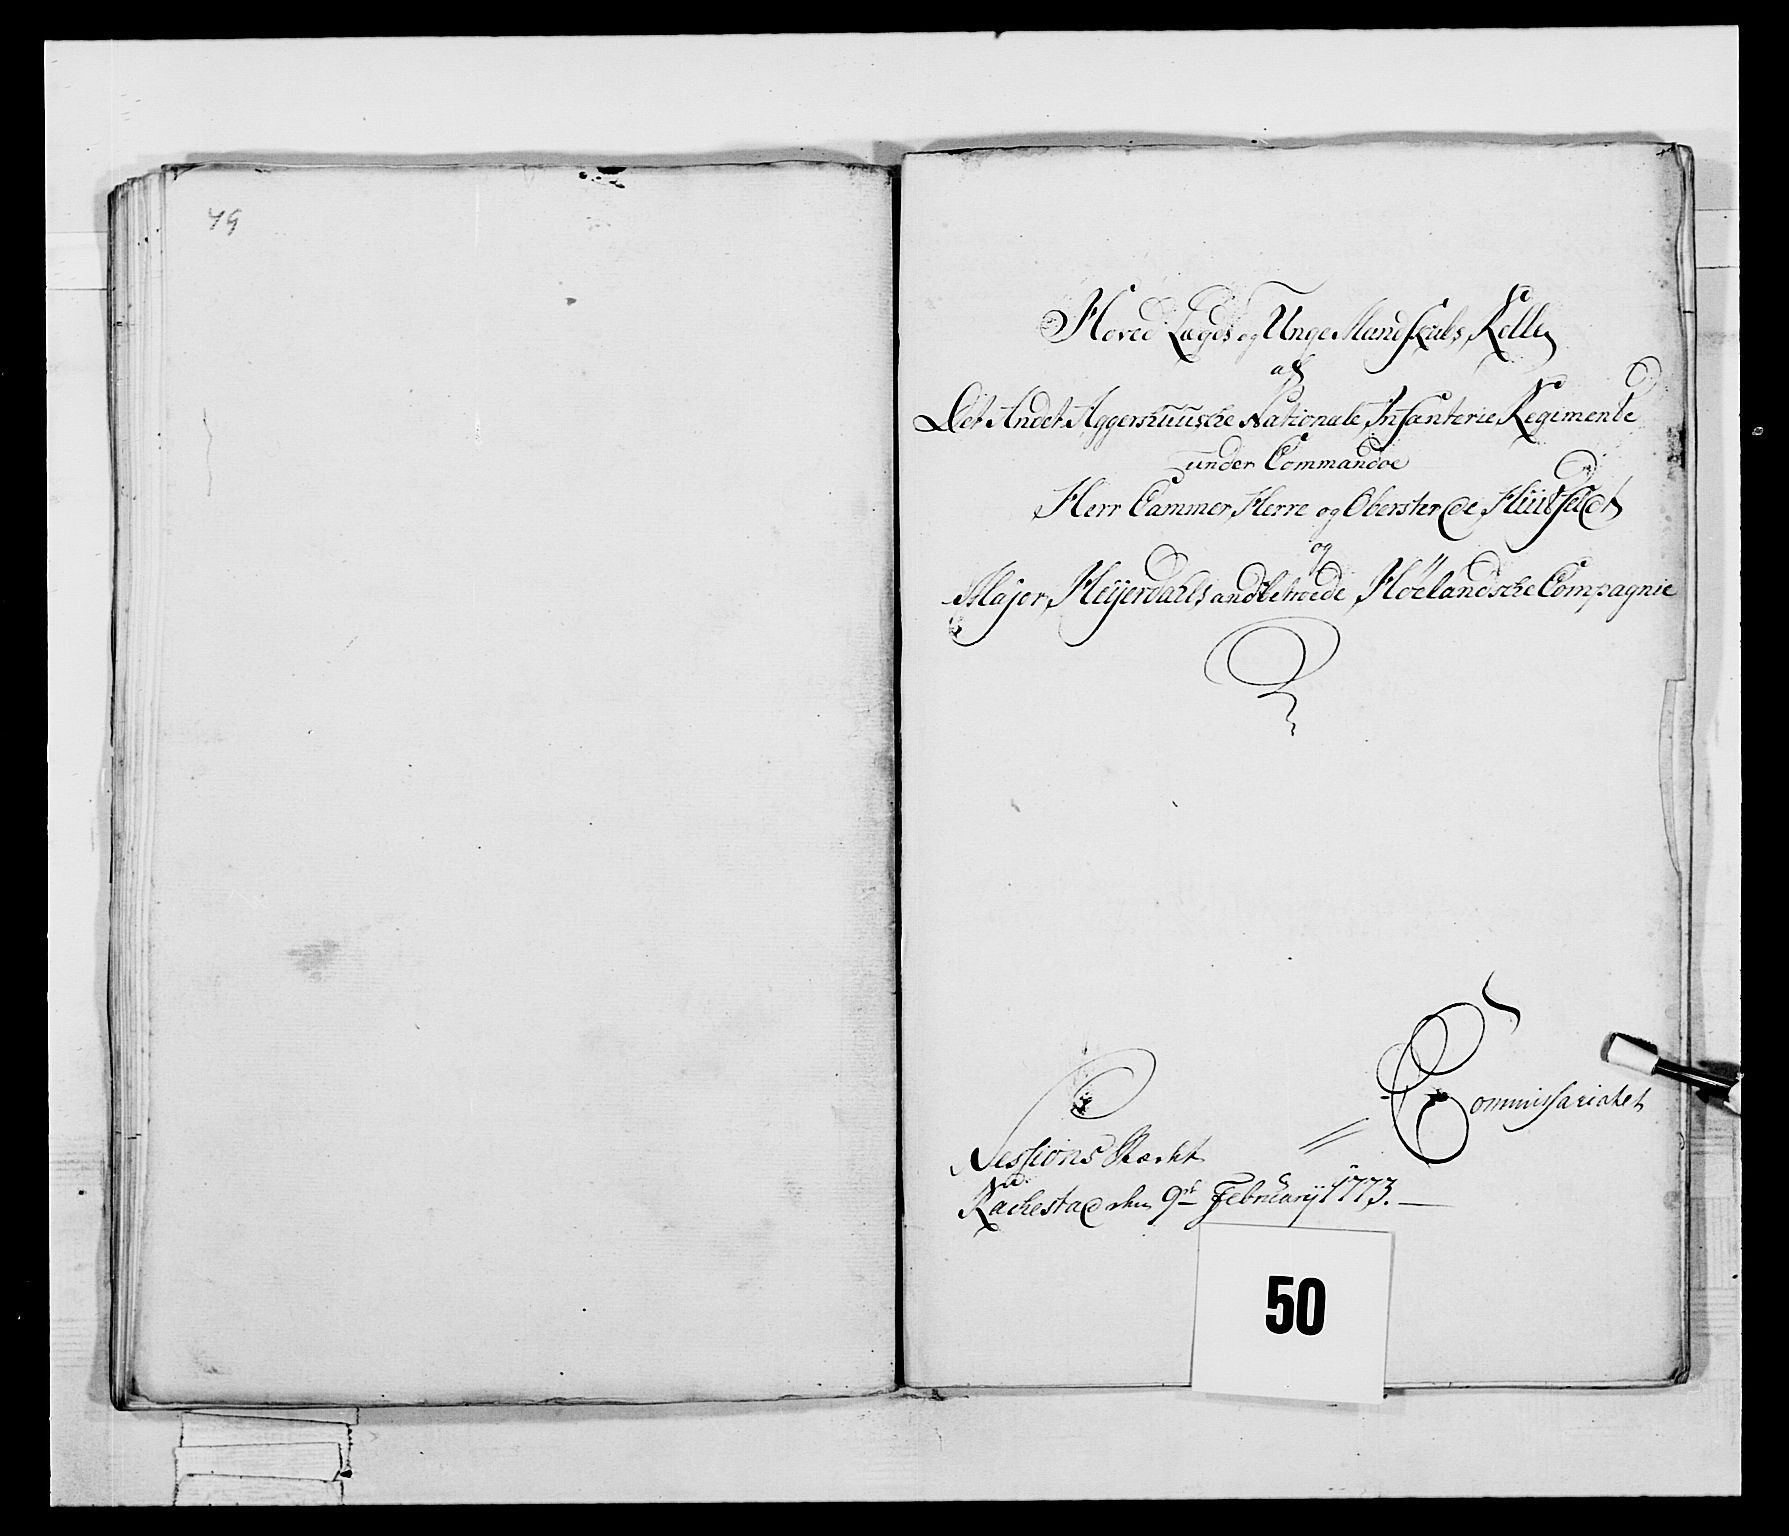 49
Hoved Lægds og Unge Mandskabs Rulle
af
Det Andet Aggershuusche Nationale Infanterie Regimente
under Commandoe
Herr Cammer Herre og Oberster de Hüitfeldt
og
Major Heÿerdahls andbetroede Höelandsche Compagnie
Commissariatet
Sessions
Rachestad den 9de Februarÿ 1773.
50